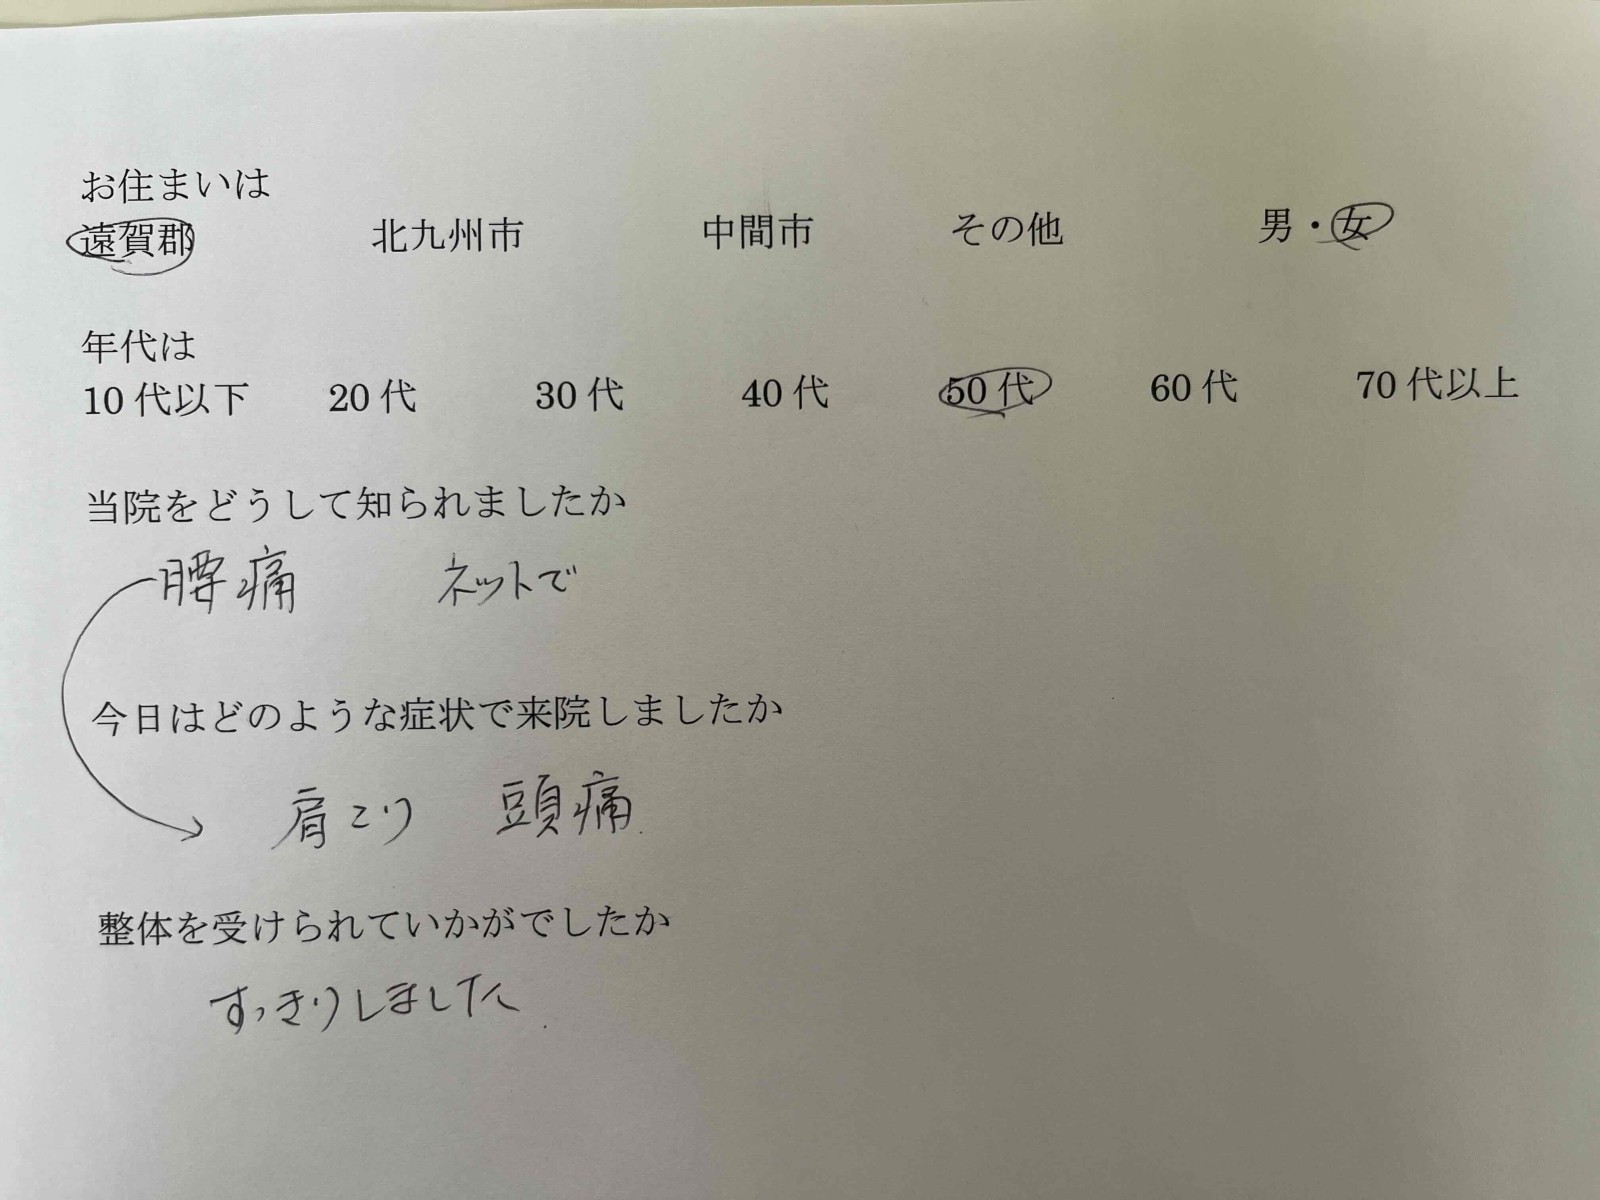 お住まいは
遠賀郡 北九州市 中間市 その他 男・女
年代は
10代以下 20代 30代 40代 50代 60代 70代以上
当院をどうして知られましたか
腰痛 ネットで
今日はどのような症状で来院しましたか
肩こり 頭痛
整体を受けられていかがでしたか
すっきりしました